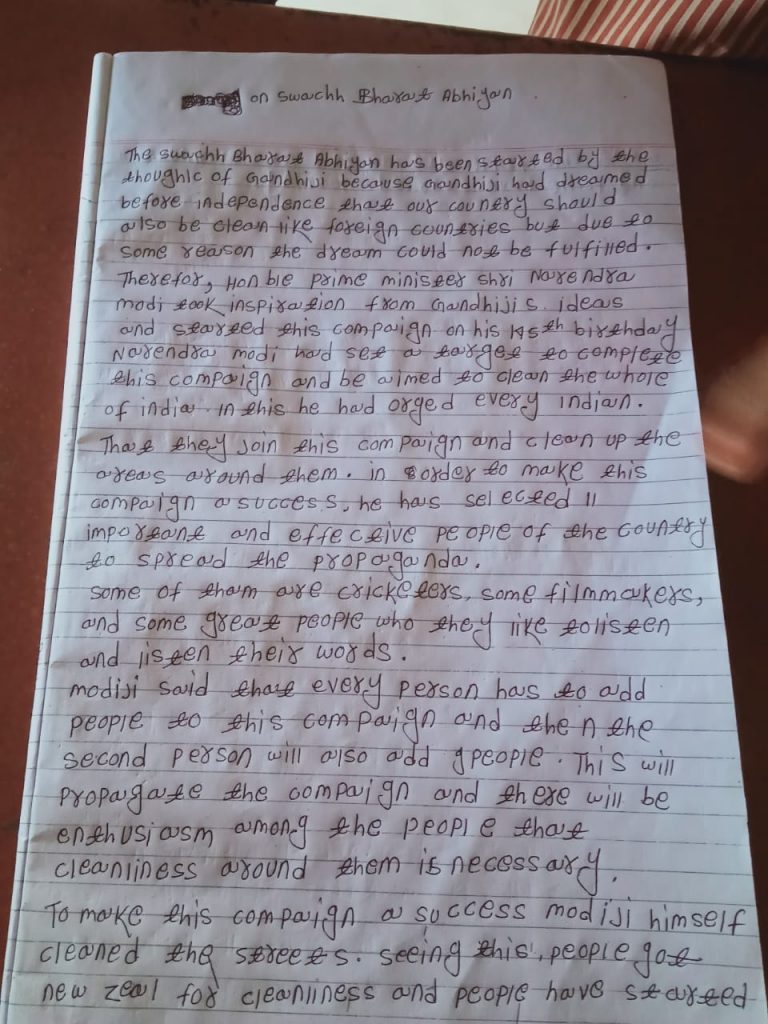 on swachh Bharat Abhiyan
The swachh Bharat Abhiyan has been started by the
thoughlc of Gandhiji because Gandhiji had dreamed
before independence that our country should
also be clean like foreign countries but due to
some reason the dream could not be fulfilled.
Therefor, Hon ble prime minister shri Narendra
modi took inspiration from Gandhiji s ideas
and started this compaign on his 145th birthday
Narendra modi had set a target to complete
this compaign and be aimed to clean the whole
of india. in this he had orged every indian.
That they join this compaign and clean up the
areas around them. in order to make this
compaign a success, he has selected 11
important and effective people of the country
to spread the propaganda.
some of tham are cricketers, some filmmakers,
and some great people who they like tolisten
and listen their words.
modiji said that every person has to add
people to this compaign and the n the
second person will also add 9people. This will
propagate the compaign and there will be
enthusiasm among the people that
cleanliness around them is necessary.
To make this compaign a success modiji himself
cleaned the streets. seeing this, people got
new zeal for cleanliness and people have started